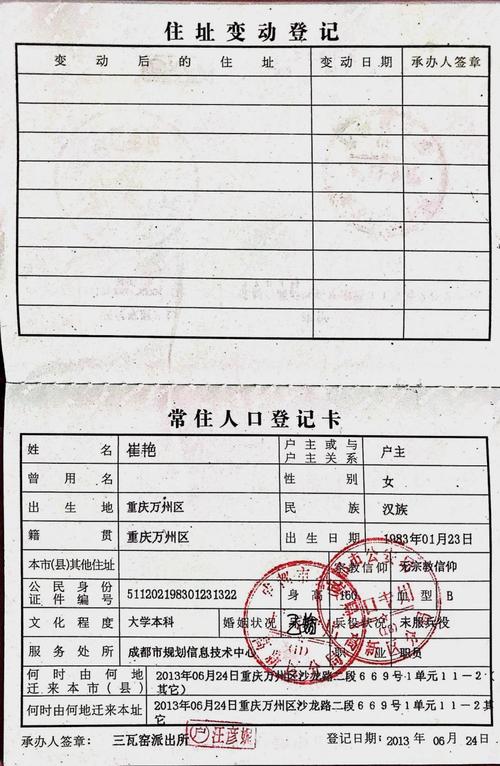 住址变动登记
变动后的住址 变动日期 承办人签章
常住人口登记卡
姓名 崔艳 户主或与户主关系 户主
曾用名 性别 女
出生地 重庆万州区 民族 汉族
籍贯 重庆万州区 出生日期 1983年01月23日
本市(县)其他住址 宗教信仰 无宗教信仰
公民身份证件编号 511202198301231322 身高 160 血型 B
文化程度 大学本科 婚姻状况 兵役状况 未服兵役
服务处所 成都市规划信息技术中心 职业 职员
何时由何地迁来本市(县) 2013年06月24日重庆万州区沙龙路二段669号1单元11-2(其它)
何时由何地迁来本址 2013年06月24日重庆万州区沙龙路二段669号1单元11-2(其它)
承办人签章: 三瓦窑派出所 户 汪彦妮 登记日期: 2013年06月24日